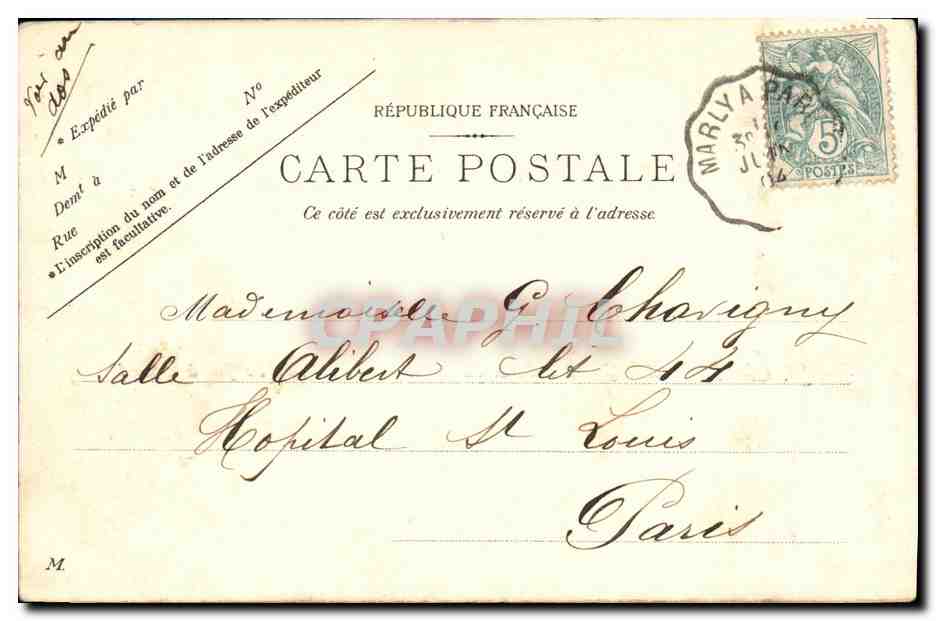 Voir au
dos
* Expédié par
M N°
Demt à
Rue
* L'inscription du nom et de l'adresse de l'expéditeur
est facultative.
RÉPUBLIQUE FRANÇAISE
CARTE POSTALE
Ce côté est exclusivement réservé à l'adresse
MARLY A PARIS
30
JUIN
04
5
POSTES
CPAPHIL
Mademoiselle G. Chavigny
Salle Alibert lit 44
Hopital St Louis
Paris
M.